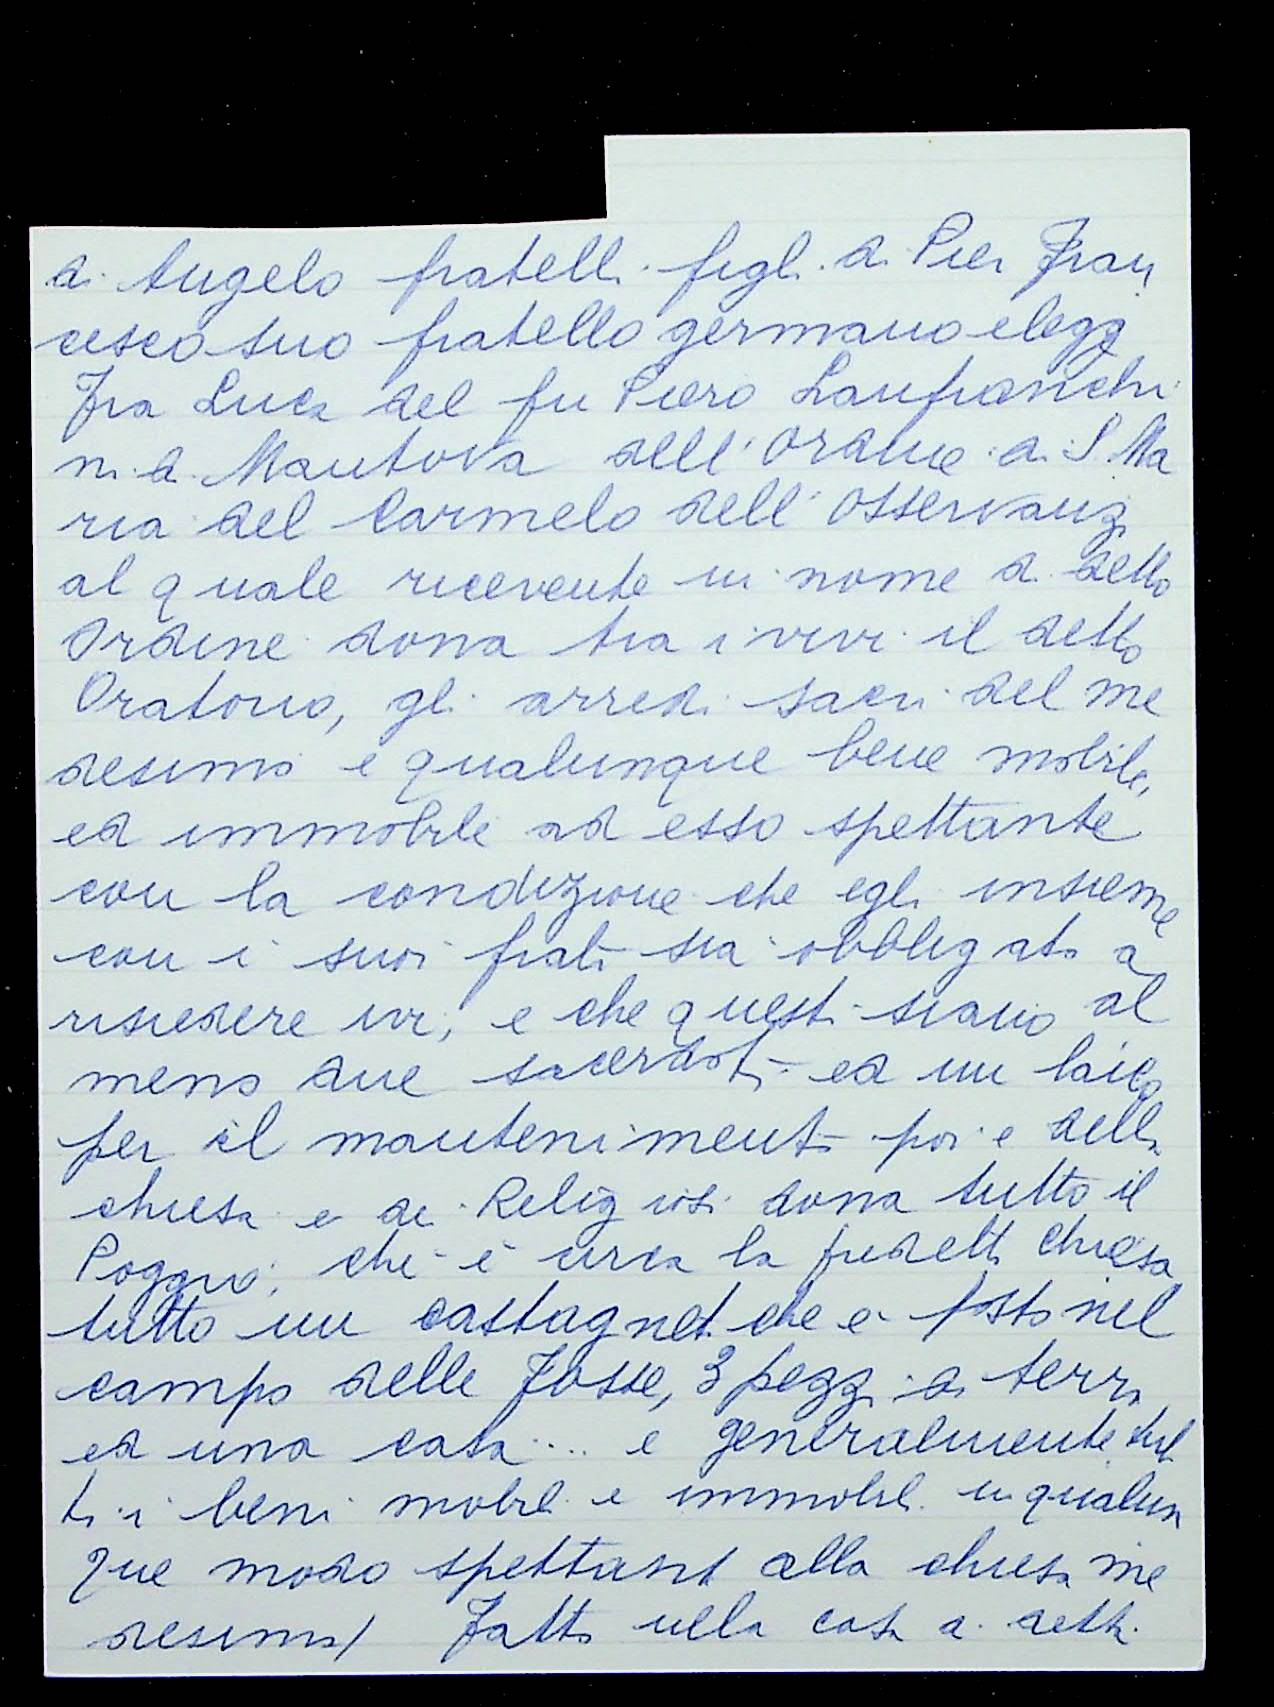 di Angelo fratelli figli di Pier Fran
cesco suo fratello germano elegg
Fra Luca del fu Piero Lanfranchi
ni di Mantova dell'Ordine di S. Ma
ria del Carmelo dell'Osservanz
al quale ricevente in nome di detto
Ordine dona tra i vivi il detto
Oratorio, gli arredi sacri del me
desimo e qualunque bene mobile,
ed immobile ad esso spettante
con la condizione che egli insieme
con i suoi frati sia obbligato a
risiedere ivi, e che questi siano al
meno due sacerdoti ed un laico
per il mantenimento poi e della
chiesa e dei Religiosi dona tutto il
Poggio, che è circa la predetta chiesa
tutto un castagneto che è posto nel
campo delle Fosse, 3 pezzi di terra
ed una casa .... e generalmente tut
ti i beni mobili e immobili in qualun
que modo spettanti alla chiesa me
desima/ Fatto nella casa di detta